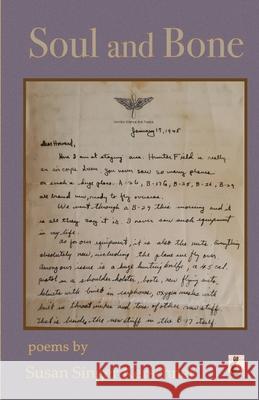 Soul and Bone
January 19, 1945
Dear Howard,
Here I am at staging area Hunter Field is really
an air corps town. You never saw so many planes
or such a huge place. A-26, B-17G, B-25, B-26, B-29
all brand new, ready to fly overseas.
We went through a B-29 this morning and it
is all they say it is. I never saw such equipment
in my life.
As for our equipment, it is also the nuts. Everything
absolutely new, including the plane we fly over
Among our issue is a huge hunting knife, a 45 cal.
pistol in a shoulder holster, boots, new flying suits,
helmets with built in earphones, oxygen masks with
built in throat mikes and tons of other new stuff.
That is besides the new stuff in the B-17 itself.
poems by
Susan